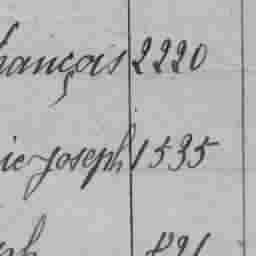 ançois 2220
ie Joseph 1535
ph 821